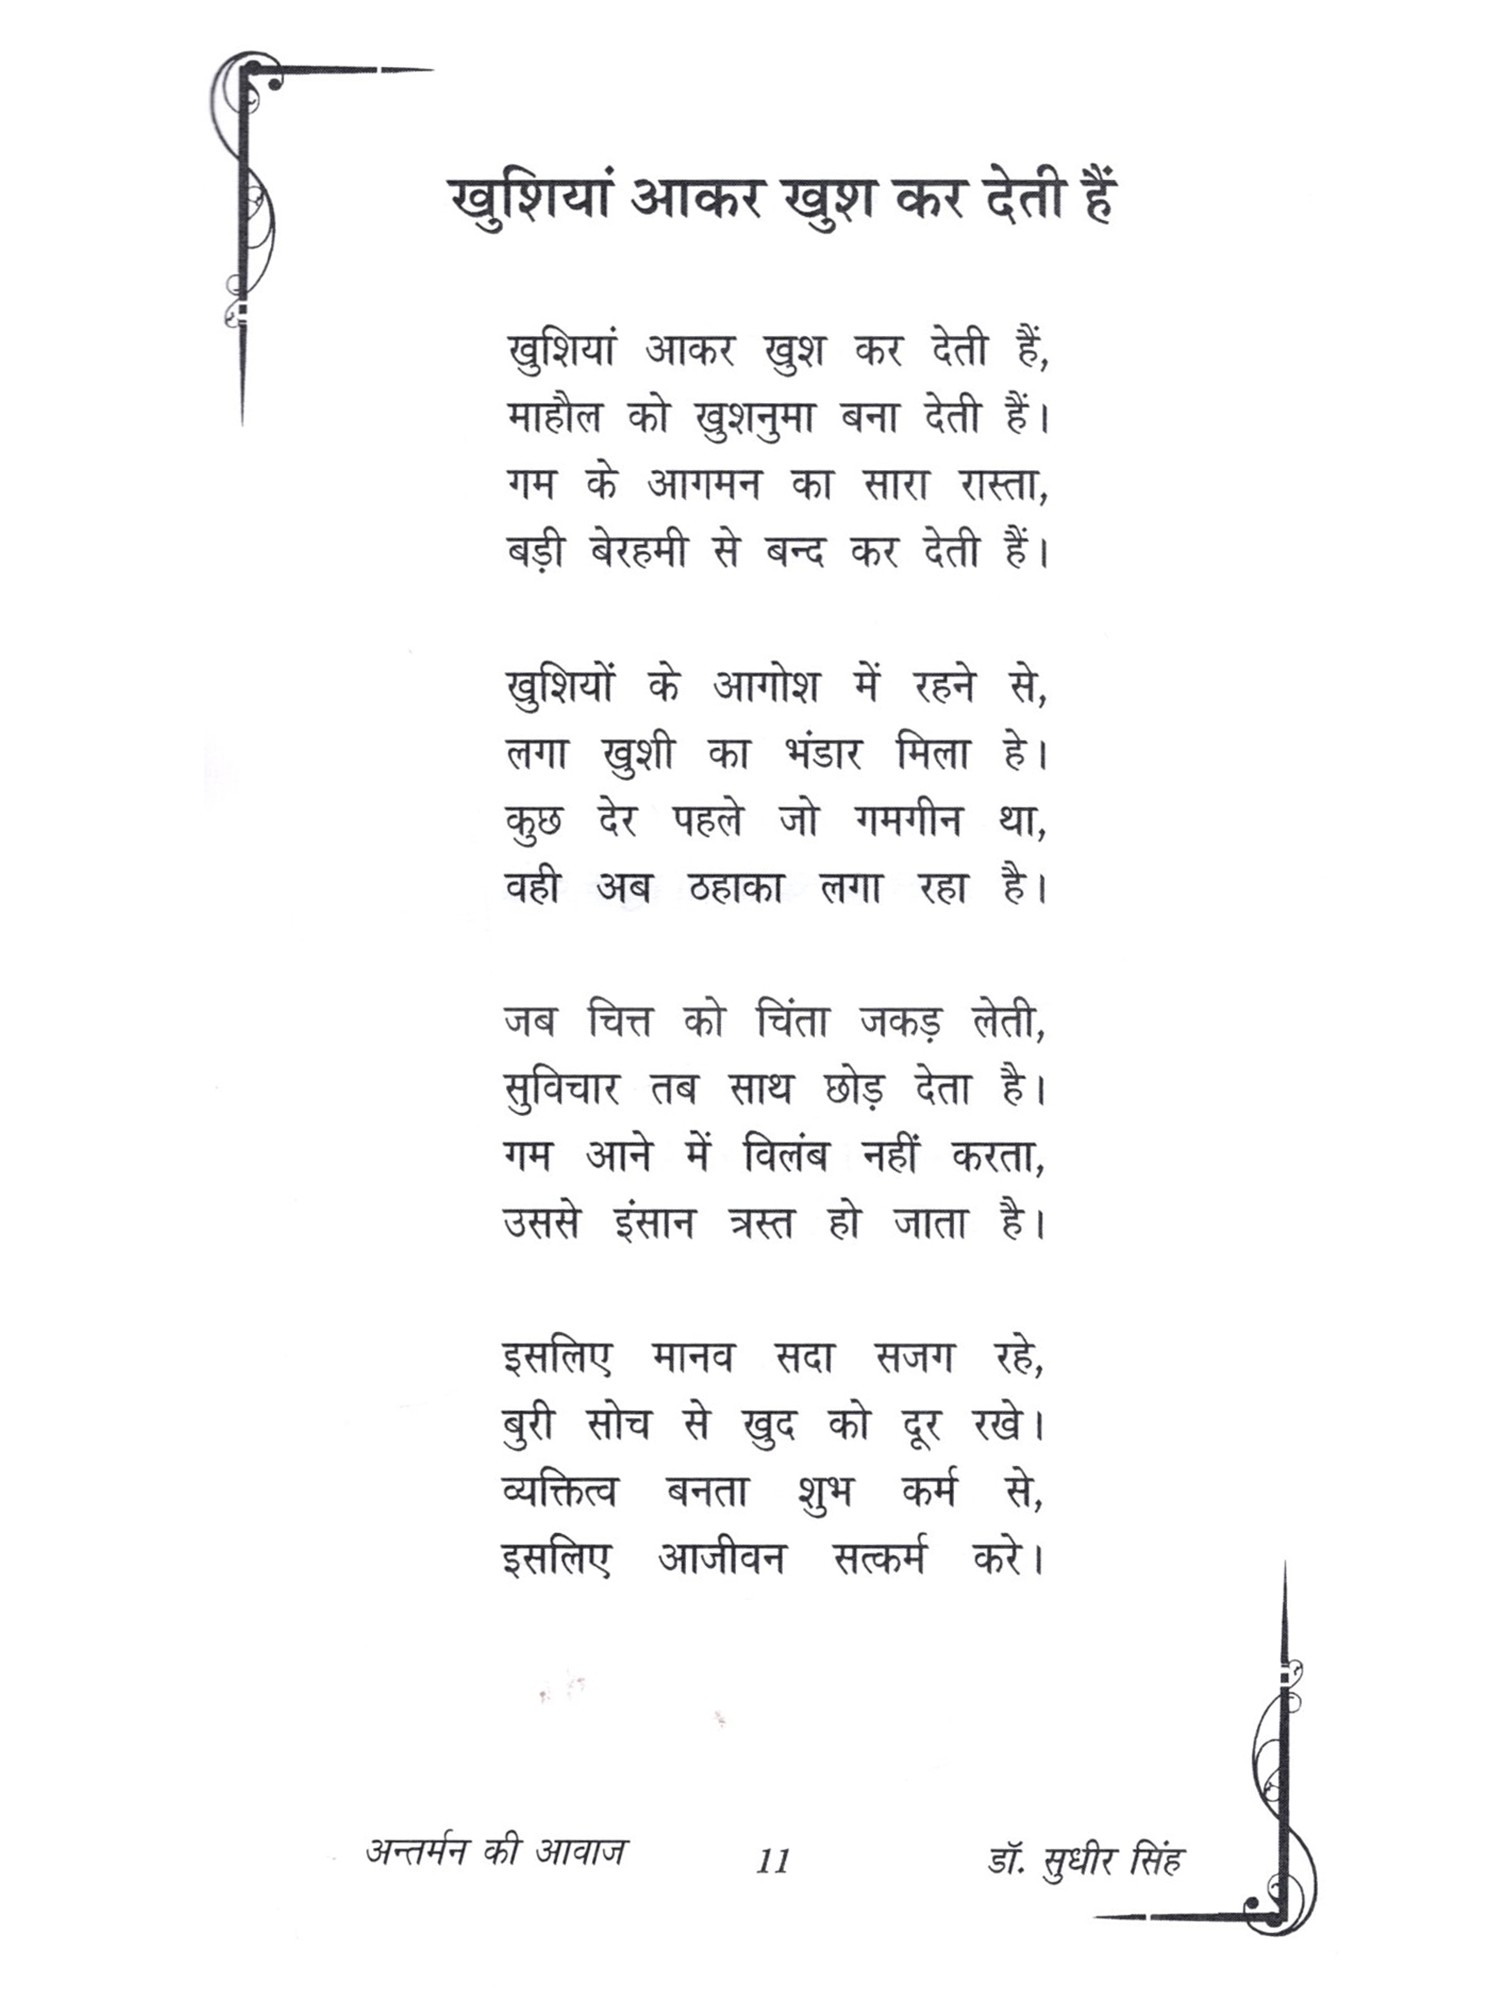 खुशियां आकर खुश कर देती हैं
खुशियां आकर खुश कर देती हैं,
माहौल को खुशनुमा बना देती हैं।
गम के आगमन का सारा रास्ता,
बड़ी बेरहमी से बन्द कर देती हैं।
खुशियों के आगोश में रहने से,
लगा खुशी का भंडार मिला हे।
कुछ देर पहले जो गमगीन था,
वही अब ठहाका लगा रहा है।
जब चित्त को चिंता जकड़ लेती,
सुविचार तब साथ छोड़ देता है।
गम आने में विलंब नहीं करता,
उससे इंसान त्रस्त हो जाता है।
इसलिए मानव सदा सजग रहे,
बुरी सोच से खुद को दूर रखे।
व्यक्तित्व बनता शुभ कर्म से,
इसलिए आजीवन सत्कर्म करे।
अन्तर्मन की आवाज 11 डॉ. सुधीर सिंह